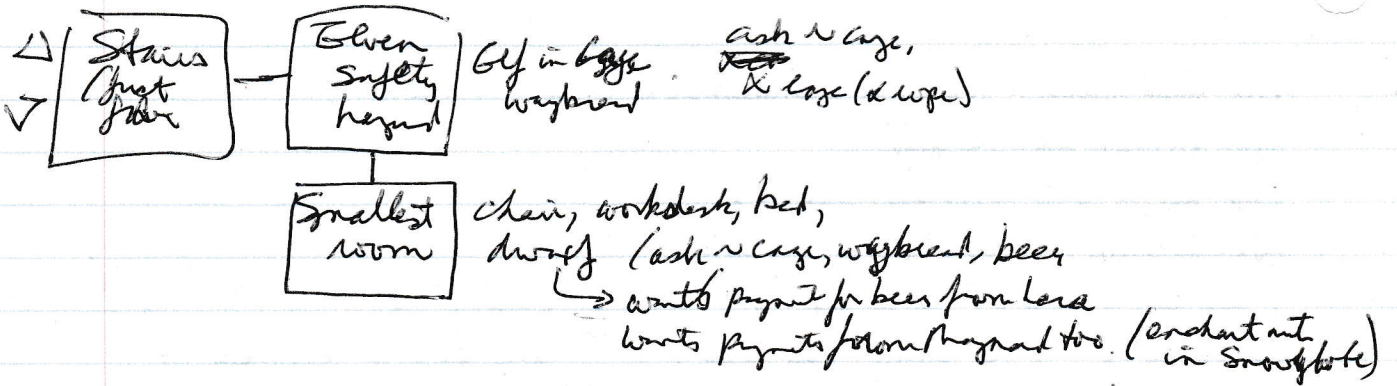 Stairs
(first
floor
Elven
safety
hazard
Elf in cage
waybread
ask ~ cage,
x cage (x rope)
Smallest
room
chair, workdesk, bed,
dwarf (ask ~ cage, waybread, beer
wants payment for beer from Lara
wants payments from Maynard too. (enchantment
in Snowglobe)